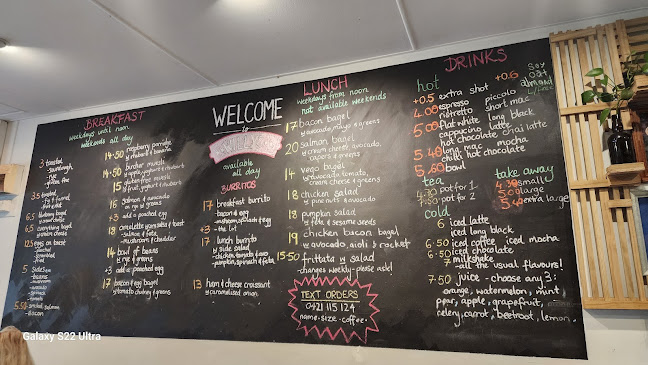 BREAKFAST
weekdays until noon
weekends all day
3 toasted
- sourdough
- rye
- gluten free
3.5 toasted
- fruit
6.5 blueberry bagel
6.5 everything bagel
12.5 eggs on toast
- poached
- scrambled
- fried
5 Sides
- beans
- mushroom
- avocado
- spinach
- tomato
5.50 smoked salmon
- bacon
14.50 raspberry porridge
w rhubarb & banana
14.50 bircher muesli
w apple, yoghurt & rhubarb
15 gluten free muesli
w fruit, yoghurt & rhubarb
16 salmon & avocado
on rye w greens
+3 add a poached egg
18 omelette w tomatoes & toast
- salmon & feta
- mushroom & cheddar
14 bowl of beans
w rye & greens
+3 add a poached egg
17 bacon & egg bagel
w tomato chutney & greens
WELCOME
to
available
all day
BURRITOS
17 breakfast burrito
- bacon & egg
- mushroom, spinach & egg
+3 - the lot
17 lunch burrito
w side salad
- chicken, tomato & avo
- pumpkin, spinach & feta
13 ham & cheese croissant
w caramelised onion
LUNCH
weekdays from noon
not available weekends
17 bacon bagel
w avocado, mayo & greens
20 salmon bagel
w cream cheese, avocado,
capers & greens
14 vego bagel
w avocado, tomato,
cream cheese & greens
18 chicken salad
w pine nuts & avocado
18 pumpkin salad
w feta & sesame seeds
19 chicken bacon bagel
w avocado, aioli & rocket
15-50 frittata w salad
- changes weekly - please ask!
TEXT ORDERS
0421 115 124
name - size - coffee
DRINKS
hot
+0.6 soy
oat
almond
l/free
+0.5 extra shot
4.00 espresso piccolo
ristretto short mac
5.00 flat white long black
cappuccino latte
hot chocolate chai latte
5.40 long mac mocha
chilli hot chocolate
5.60 bowl
tea
4.90 pot for 1
7.00 pot for 2
take away
4.30 small
5.00 large
5.40 extra large
cold
6 iced latte
iced long black
6.50 iced coffee iced mocha
6.50 iced chocolate
7 milkshake
- all the usual flavours!
7.50 juice - choose any 3:
orange, watermelon, mint,
pear, apple, grapefruit,
celery, carrot, beetroot, lemon.
Galaxy S22 Ultra